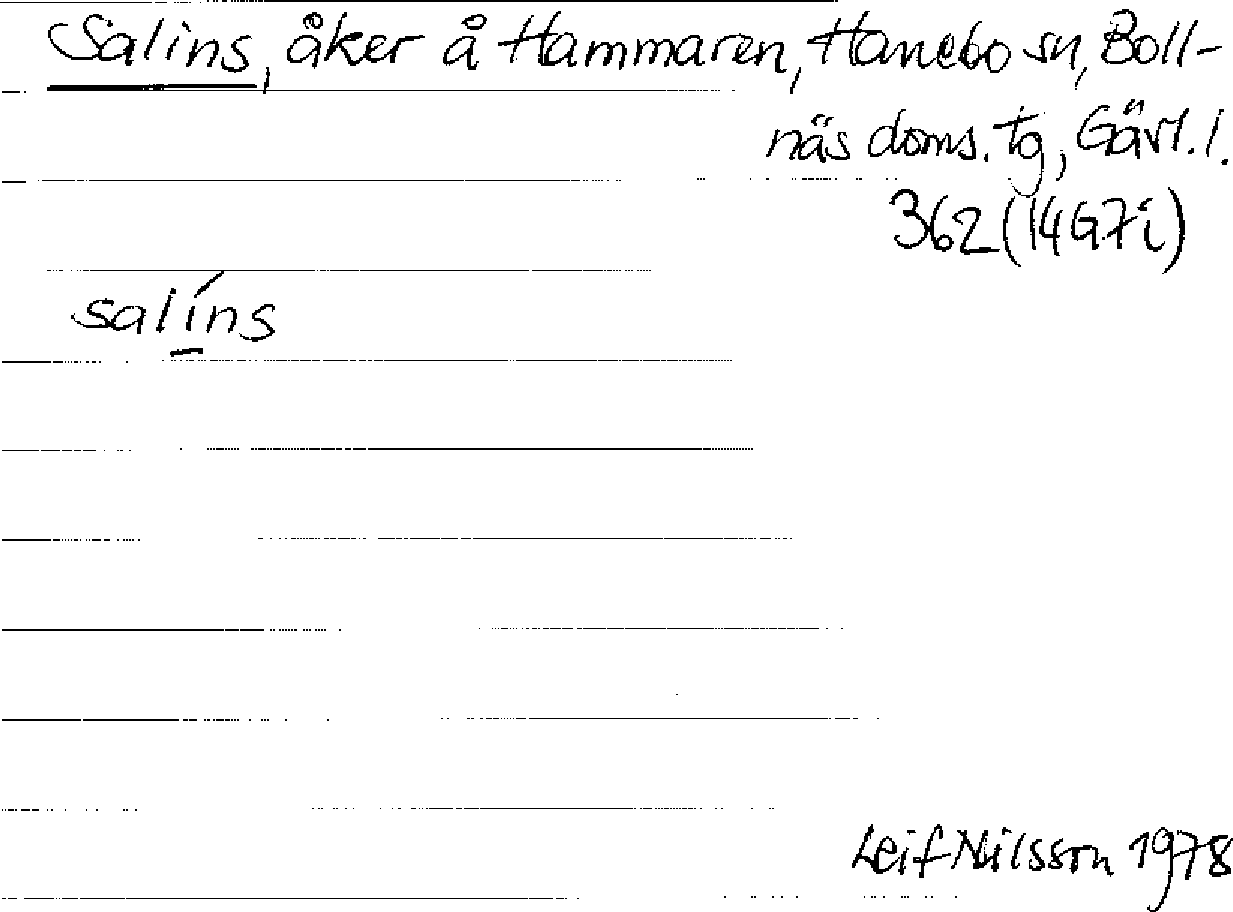 Salins, åker å Hammaren, Hanebo sn, Boll-
näs doms. tg, Gävl. l.
362 (14G7i)
salíns
Leif Nilsson 1978